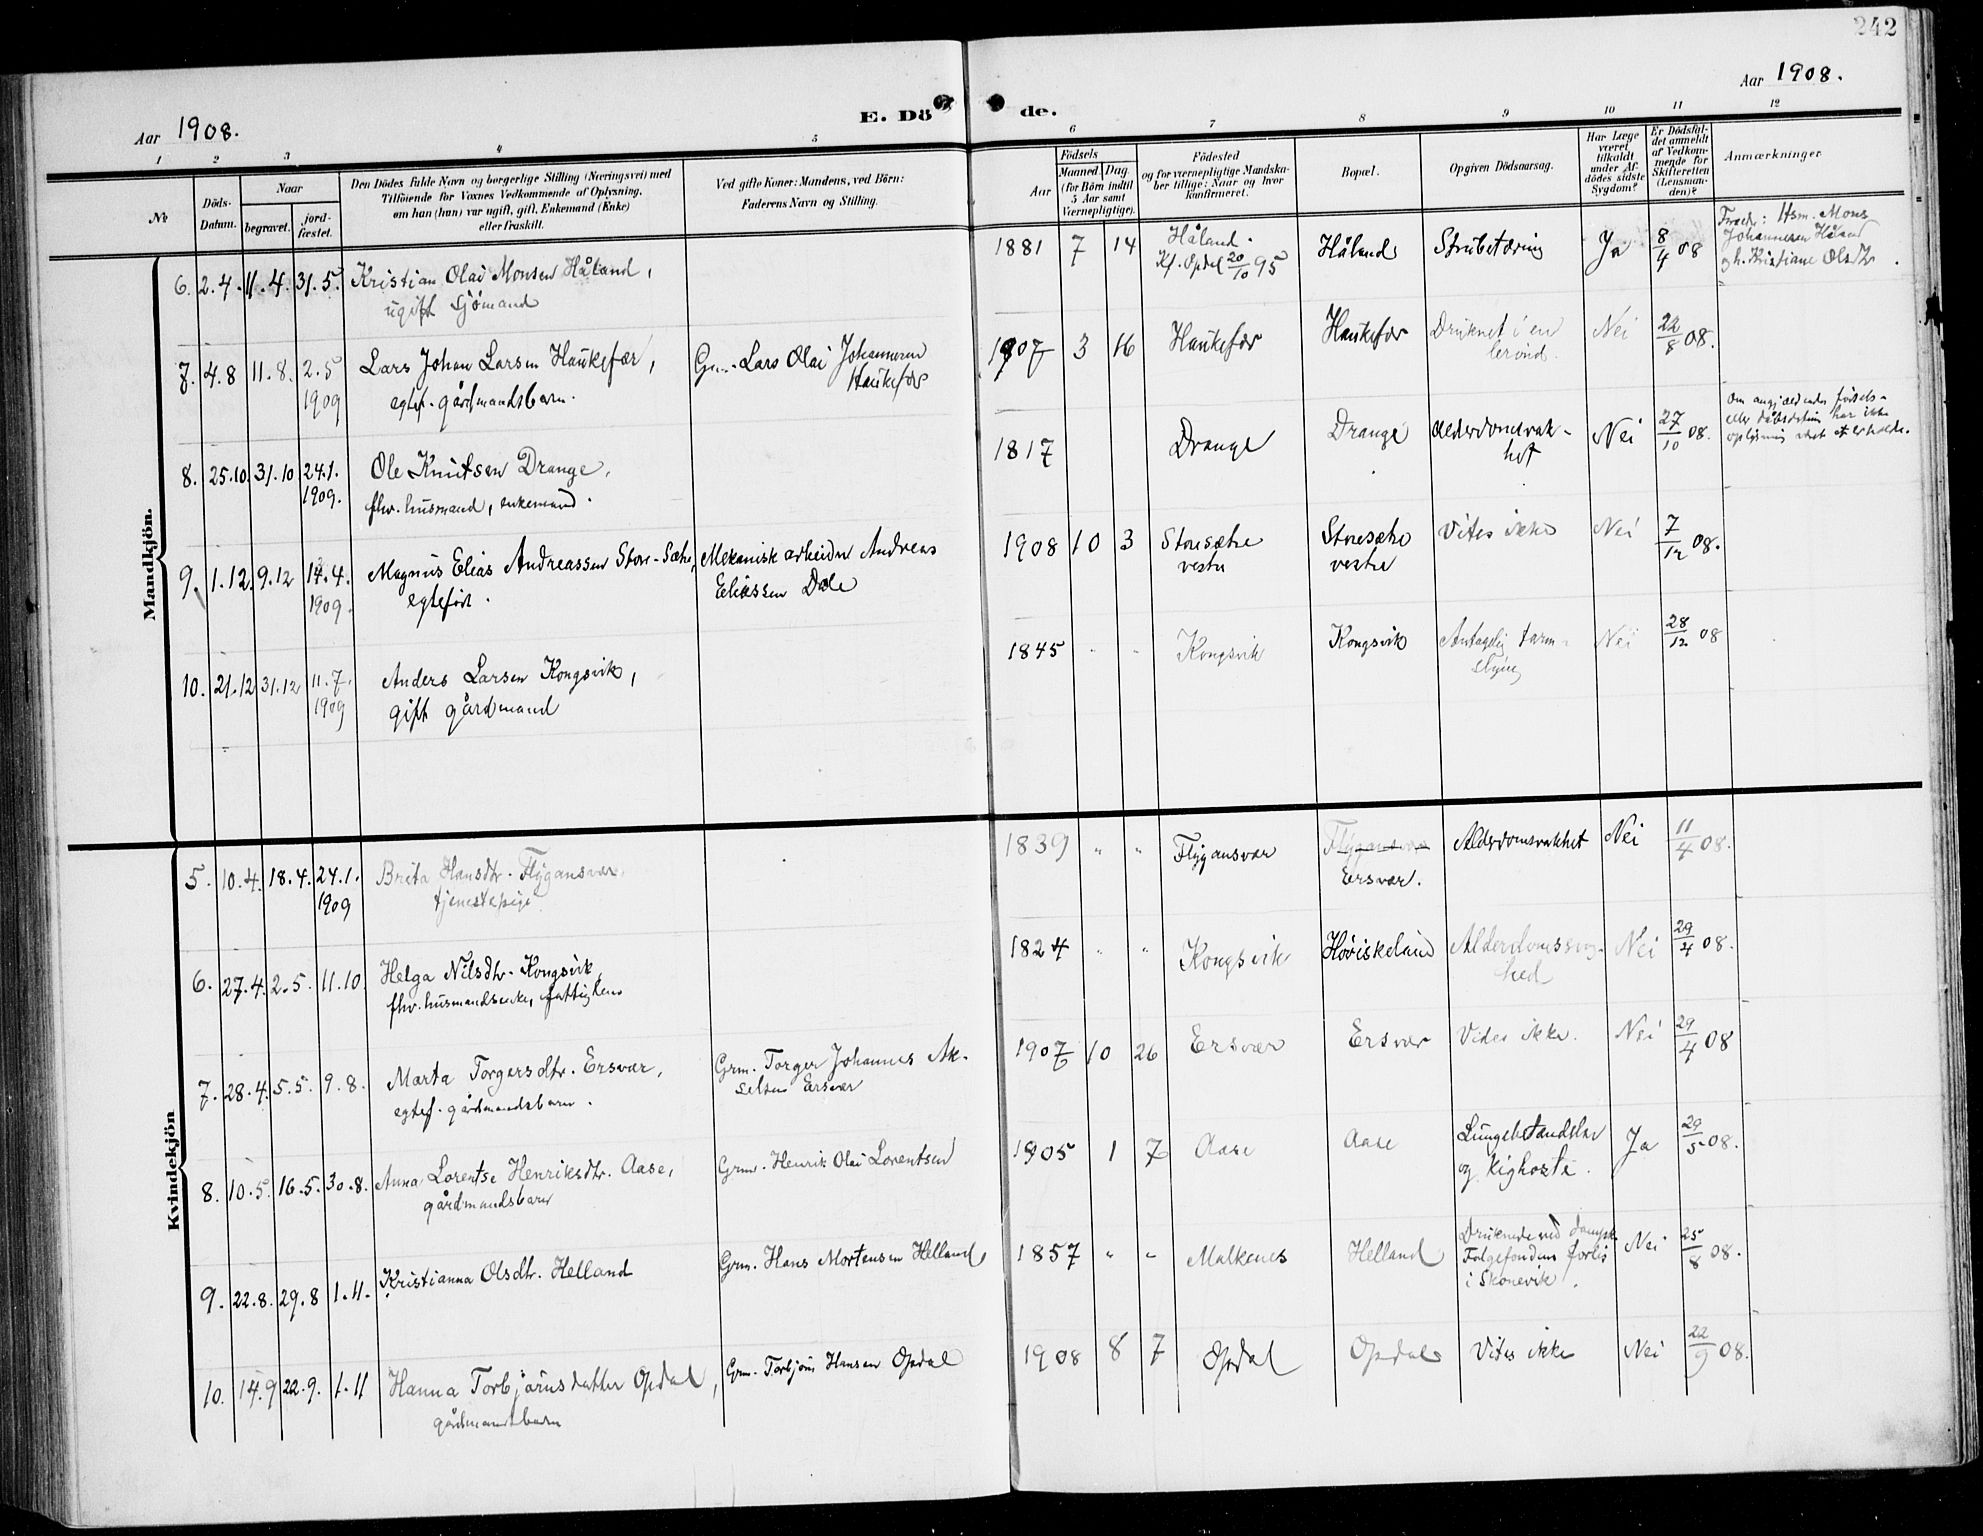 242
Aar 1908.
Aar 1908.
E. Dö de.
1 2 3 4 5 6 7 8 9 10 11 12
No
Döds-
Datum.
Naar
begravet.
jord-
fæstet.
Den Dödes fulde Navn og borgerlige Stilling (Næringsvei) med
Tilföiende for Voxnes Vedkommende af Oplysning,
om han (hun) var ugift, gift, Enkemand (Enke)
eller fraskilt.
Ved gifte Koner: Mandens, ved Börn:
Faderens Navn og Stilling.
Födsels
Aar
Maaned. Dag.
(for Börn indtil
5 Aar samt
Værnepligtige).
Födested
og for værnepligtige Mandska-
ber tillige: Naar og hvor
konfirmeret.
Bopæl.
Opgiven Dödsaarsag.
Har Læge
været
tilkaldt
under Af-
dödes sidste
Sygdom?
Er Dödsfal-
det anmeldt
af Vedkom-
mende for
Skifteretten
(Lensman-
den)?
Anmærkninger.
Mandkjön.
6. 2.4. 11.4. 31.5. Kristian Olai Monsen Håland,
ugift sjømand
1881 7 14 Håland.
Kf. Opdal 20/10 95
Håland Strubetæring Ja 8/4 08
Hsm. Mons
Johannesen Håland
og h. Kristiane Olsdtr.
7. 4.8 11.8. 2.5
1909
Lars Johan Larsen Haukefær,
egtef. gårdmandsbarn.
Lars Olai Johannesen
Haukefær
1907 3 16 Haukefær Haukefær Druknet i en
brønd.
Nei 22/8 08.
8. 25.10. 31.10 24.1.
1909.
Ole Knutsen Drange,
fhv. husmand, enkemand.
1817 Drange Drange Alderdomsvak-
het
Nei 27/10 08.
Om angjældendes fødsels-
eller dåbsdatum har ikke
oplysning været at erholde.
9. 1.12. 9.12 14.4.
1909.
Magnus Elias Andreassen Store-Sætre,
egtefød.
Mekanisk arbeider Andreas
Eliassen Dale
1908 10 3 Storesætre
vestre
Storesætre
vestre
Vites ikke Nei 7/12 08.
10. 21.12 31.12 11.7.
1909
Anders Larsen Kongsvik,
gift gårdmand
1845 " " Kongsvik Kongsvik Antagelig tarm-
slyng
Nei 28/12 08
Kvindekjön
5. 10.4. 18.4. 24.1.
1909
Brita Hansdtr. Flygansvær,
tjenestepige
1839 " " Flygansvær Flygansvær
Ersvær.
Alderdomsvakhet Nei 11/4 08.
6. 27.4. 2.5. 11.10. Helga Nilsdtr. Kongsvik,
fhv. husmandsenke, fattiglem
1824 " " Kongsvik Høviskeland Alderdomssvag-
hed
Nei 29/4 08.
7. 28.4. 5.5. 9.8. Marta Torgersdtr. Ersvær,
egtef. gårdmandsbarn.
Grm. Torger Johannes Ak-
selsen Ersvær
1907 10 26 Ersvær Ersvær Vides ikke. Nei 29/4 08
8. 10.5. 16.5. 30.8. Anna Lorentse Henriksdtr. Aase,
gårdmandsbarn
Grm. Henrik Olai Lorentsen
1905 1 7 Aase Aase Lungebetændelse
og kighoste.
Ja 29/5 08.
9. 22.8. 29.8 1.11. Kristianna Olsdtr. Helland
Grm. Hans Mortensen Helland
1857 " " Malkenes Helland Druknede ved dampsk.
Folgefondens forlis
i Skonevik.
Nei 25/8 08.
10. 14.9 22.9. 1.11 Hanna Torbjørnsdatter Opdal,
gårdmandsbarn
Grm. Torbjørn Hansen Opdal
1908 8 7 Opdal Opdal Vites ikke Nei 22/9 08.